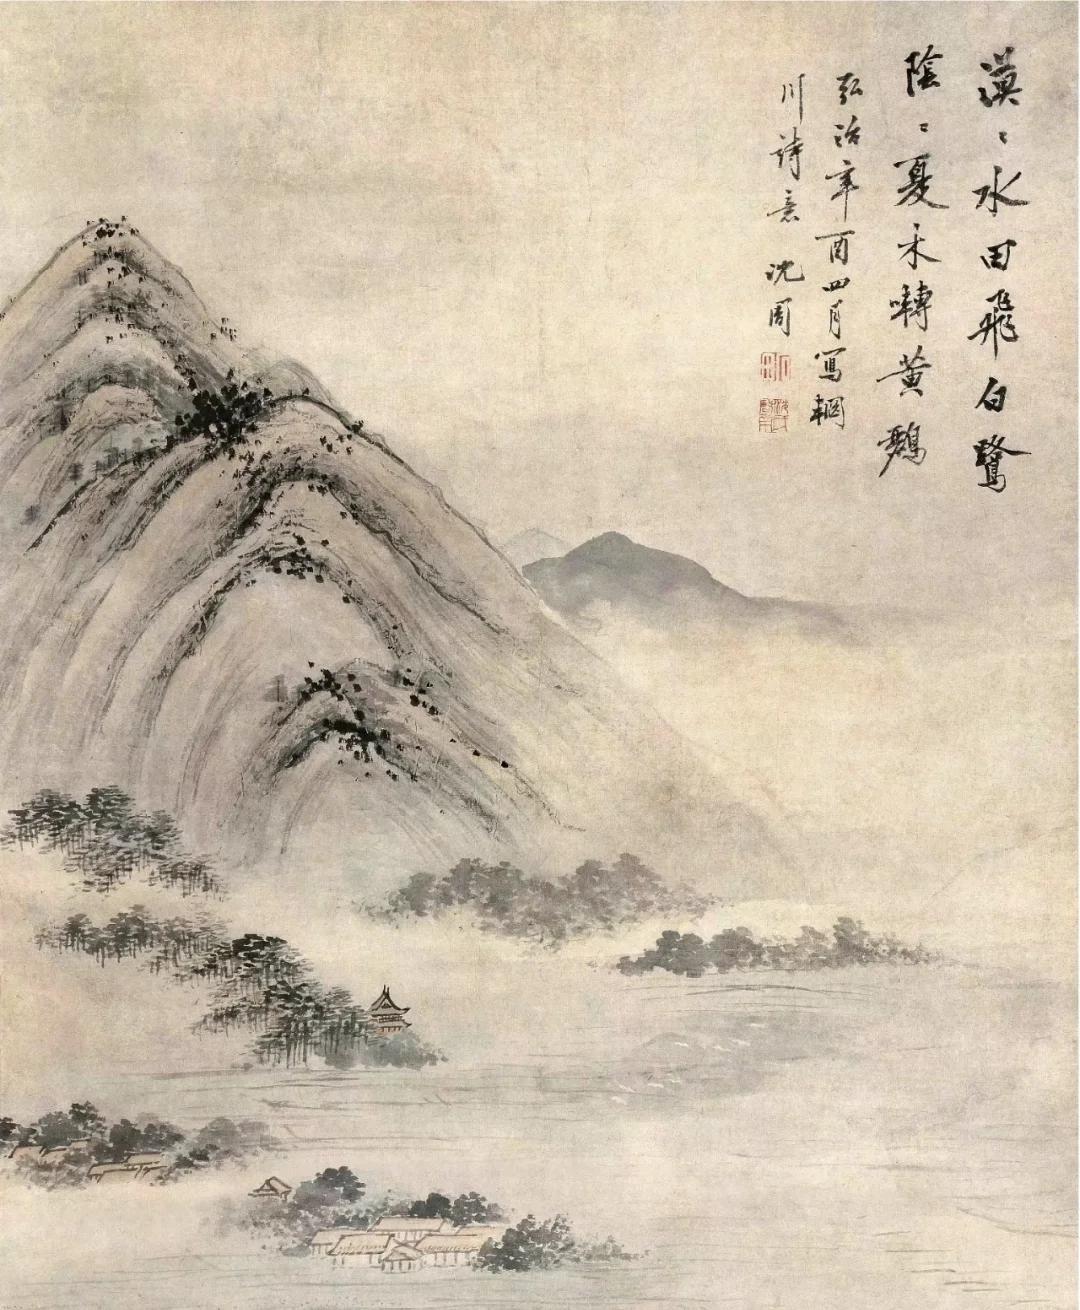 漠〻水田飛白鷺
陰〻夏木囀黃鸝
弘治辛酉四月寫輞
川詩意 沈周